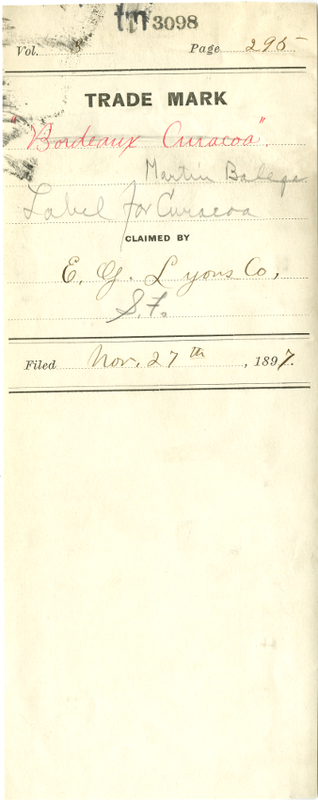 tm 3098
Vol. Page 295
TRADE MARK
"Bordeaux Curacoa".
Martin
Label for Curacoa
CLAIMED BY
E. G. Lyons Co,
S.F.
Filed Nov. 27th, 1897.